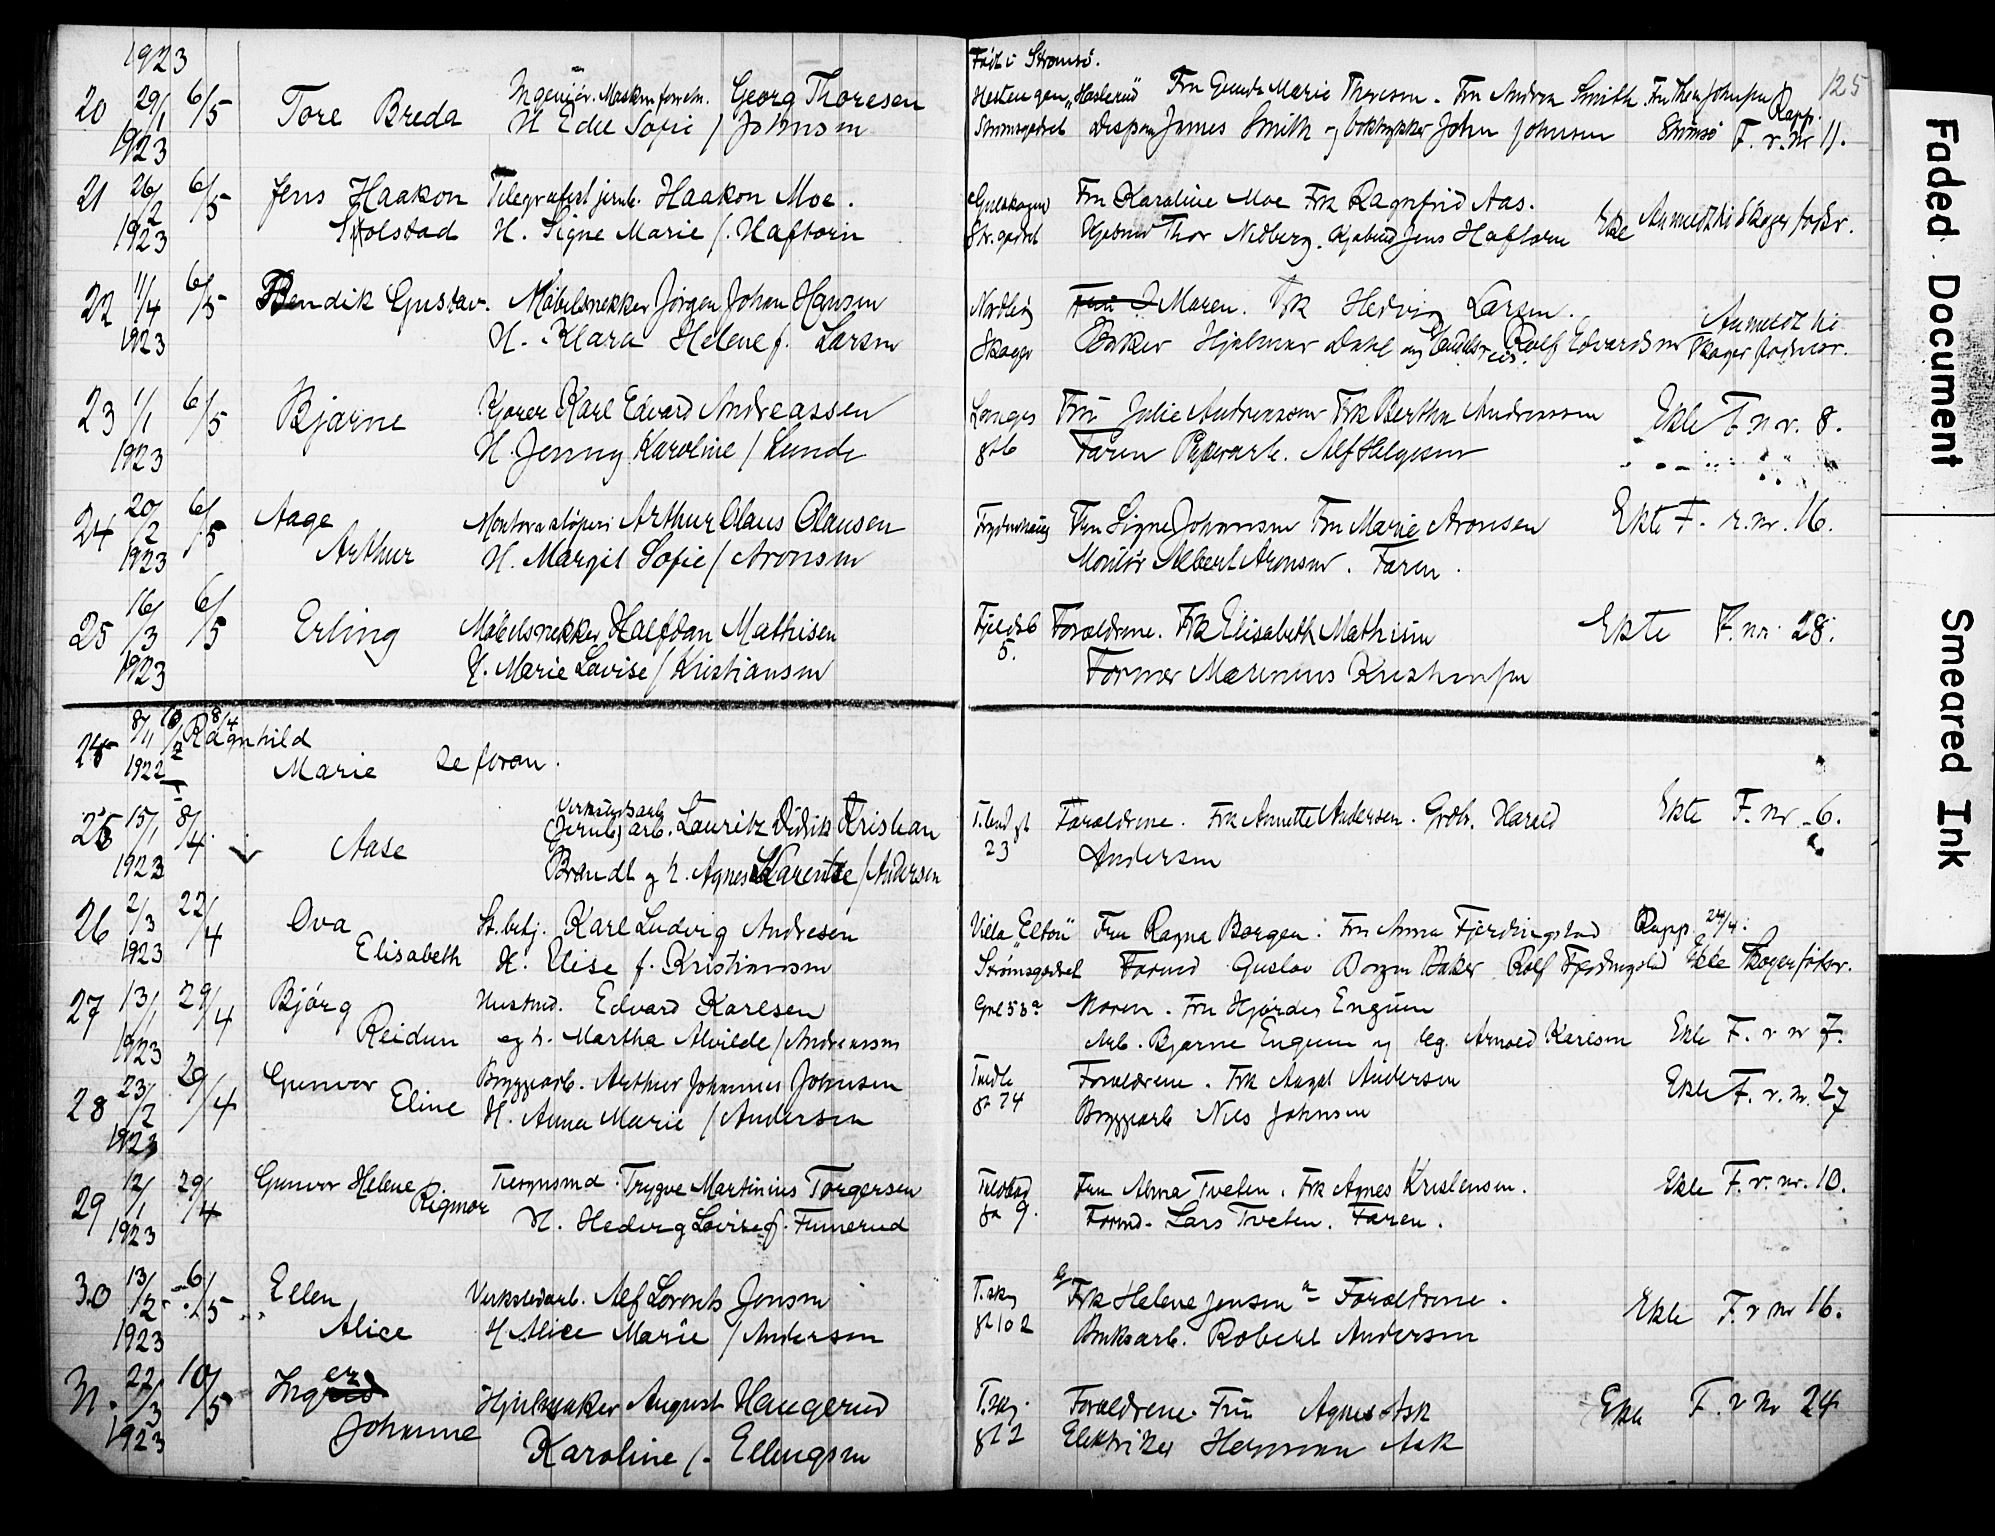 1923
Født i Strømsø.
125
20 29/1 6/5 Tore Breda Ingeniør. Maskinforretn. Georg Thoresen
1923 H. Edle Sofie / Johnsen
"Haslerud" Fru Gunda Marie Thoresen. Fru Andrea Smith. Fru Thea Johnsen Rapp.
Strømsgodset Dispon. James Smith og Boktrykker John Johnsen Strømsø F. r. nr 11.
21 26/2 6/5 Jens Haakon Telegrafist jernb. Haakon Moe.
1923 Skolstad H. Signe Marie f. Haftorn
Gulskogen Fru Karoline Moe Frk Ragnfrid Aas.
Str.godset Thor Nedberg. Jens Haftorn Ekte Anmeldt til Skoger
22 11/4 6/5 Bendik Gustav. Møbelsnekker Jørgen Johan Hansen
1923 H. Klara Helene f. Larsen
Nordby Maren. Frk Hedvig Larsen. Anmeldt til
Skoger Baker Hjalmar Dahl og Rolf Edvardsen Skoger
23 1/1 6/5 Bjarne Kjører Karl Edvard Andreassen
1923 H. Jenny Karoline / Lunde
Langes Fru Julie Andreassen Frk Bertha Andreassen Ekte F. r nr. 8.
gt 6 Faren Papirarb. Alf Helgesen
24 20/2 6/5 Aage Montør Arthur Olaus Olausen
1923 Arthur H. Margit Sofie / Aronsen
Frydenhaug Fru Signe Johansen Fru Marie Aronsen Ekte F. r. nr. 16.
Montør Albert Aronsen. Faren.
25 16/3 6/5 Erling Møbelsnekker Halfdan Mathisen
1923 H. Marie Lovise / Kristiansen
Fjeldsb Foreldrene. Frk Elisabeth Mathisen Ekte F. nr. 28.
5. Former Marinius Kristiansen
25 8/11 8/4 Ragnhild
1922 Marie Se foran.
25 15/1 8/4 Aase Verkstedsarb
(Jernb) arb. Lauritz Didrik Kristian
1923 Brandt og h. Agnes Karentse / Andersen
T.land gt Foreldrene. Frk Annette Andersen. Harald Ekte F. nr. 6.
23 Andersen
26 2/3 22/4 Ova St.betj. Karl Ludvig Andresen
1923 Elisabeth H. Elise f. Kristiansen
Villa "Elton" Fru Ragna Borgen. Fru Anna Fjerdingstad Rapp. 24/4.
Strømsgodset Gustav Borgen Baker Rolf Fjerdingstad Ekte Skoger
27 13/1 29/4 Bjørg Edvard Karlsen
1923 Reidun og h. Martha Alvilde / Andreassen
Moren. Fru Hjørdis Engum
Arb. Bjarne Engum og Arnold Karlsen Ekte F. r nr 7.
28 23/2 29/4 Gunvor Bryggearb. Arthur Johannes Johnsen
1923 Eline H. Anna Marie / Andersen
Foreldrene. Frk Andersen Ekte F. r. nr. 27
gt 74 Bryggearb Nils Johnsen
29 12/1 29/4 Gunvor Helene Trygve Martinius Torgersen
1923 Rigmor H. Hedvig Lovise f. Finnerud
Fru Alma Tveten. Frk Agnes Kristensen. Ekte F. r. nr. 10.
gt 9. Lars Tveten. Faren.
30 13/2 6/5 Ellen Verkstedarb. Alf Lorents Jensen
1923 Alice H. Alice Marie / Andersen
T.skg Frk Helene Jensen Foreldrene.
gt 102 Bruksarb. Robert Andersen Ekte F. r nr 16.
31. 22/3 10/5 Inger Hjulmaker August Haugerud
1923 Johanne Karoline f. Ellingsen
T.skg. Foreldrene. Fru Agnes Ask Ekte F. r nr 24
gt 2 Elektriker Hermann Ask
Faded Document
Smeared Ink